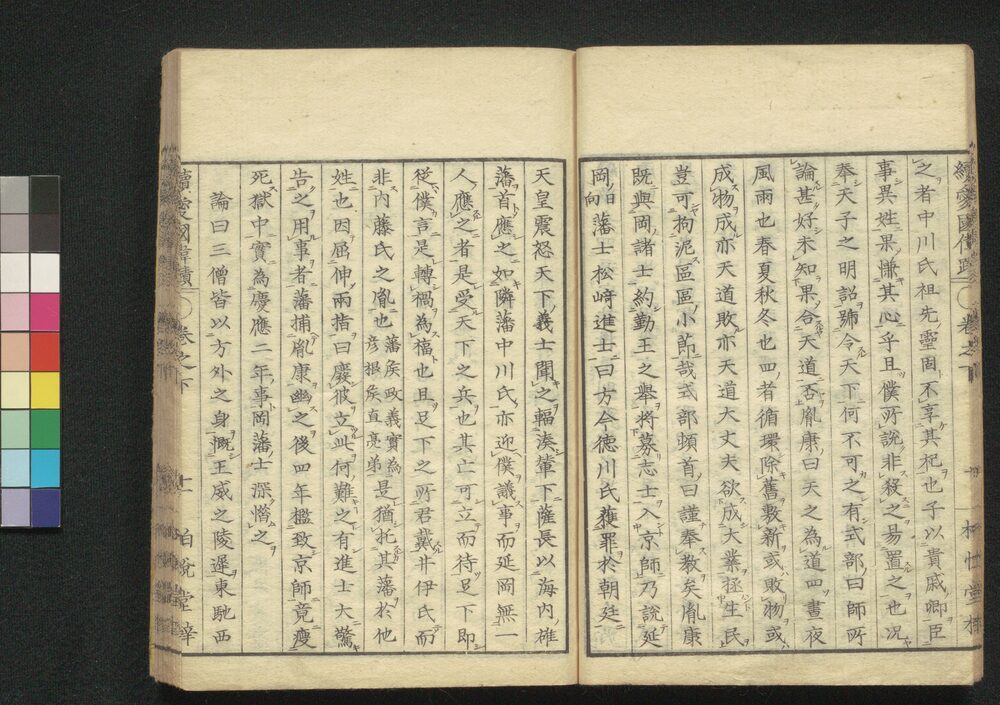 之者中川氏祖先靈固不享其祀也子以貴戚卿臣
事異姓果慊其心乎且僕所說非殺之易置之也况
奉天子之明詔號令天下何不可之有式部曰師所
論甚好未知果合天道否胤康曰天之為道四晝夜
風雨也春夏秋冬也四者循環除舊敷新或敗物或
成物成亦天道敗亦天道大丈夫欲成大業拯生民
豈可拘泥區區小節哉式部頓首曰謹奉教矣胤康
既與岡諸士約勤王之舉將募志士入京師乃說延
岡日向藩士松﨑進士曰方今德川氏獲罪於朝廷
天皇震怒天下義士聞之輻湊輦下薩長以海内確
藩首應之如隣藩中川氏亦迎僕議事而延岡無一
人應之者是受天下之兵也其亡可立而待足下即
從僕言是轉禍為福也且足下之所君戴井伊氏而
非内藤氏之胤也藩矦政義實為彦根矦直亮弟是猶托其藩於他
姓也因屈伸兩指曰廢彼立此何難之有進士大驚
告之用事者藩捕胤康幽之後四年檻致京師竟瘦
死獄中實為慶應二年事岡藩士深惜之
論曰三僧皆以方外之身慨王威之陵遲東馳西
卷之下
十一